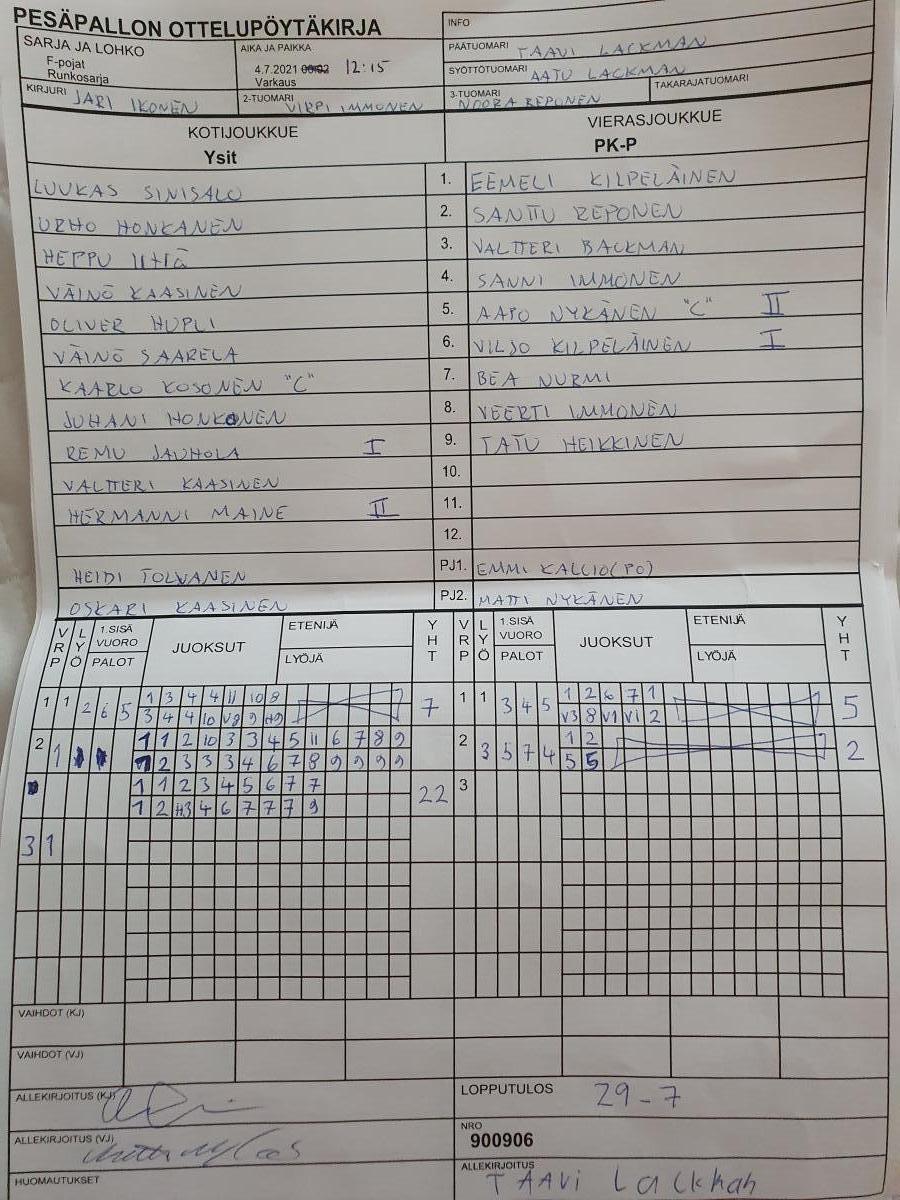 PESÄPALLON OTTELUPÖYTÄKIRJA
INFO
SARJA JA LOHKO
F-pojat
Runkosarja
AIKA JA PAIKKA
4.7.2021 00:02 12:15
Varkaus
PÄÄTUOMARI TAAVI LACKMAN
SYÖTTÖTUOMARI AATU LACKMAN
KIRJURI JARI IKONEN
2-TUOMARI VIRPI IMMONEN
3-TUOMARI NOORA REPONEN
TAKARAJATUOMARI
KOTIJOUKKUE
Ysit
VIERASJOUKKUE
PK-P
LUUKAS SINISALO 1. EEMELI KILPELÄINEN
URHO HONKANEN 2. SANTTU REPONEN
HEPPU 3. VALTTERI BACKMAN
VÄINÖ KAASINEN 4. SANNI IMMONEN
OLIVER HUPLI 5. AAPO NYKÄNEN "C" II
VÄINÖ SAARELA 6. VILJO KILPELÄINEN I
KAARLO KOSONEN "C" 7. BEA NURMI
JUHANI HONKONEN 8. VEERTI IMMONEN
REMU JAUHOLA I 9. TATU HEIKKINEN
VALTTERI KAASINEN 10.
HERMANNI MAINE II 11.
12.
HEIDI TOLVANEN PJ1. EMMI KALLIO(PO)
OSKARI KAASINEN PJ2. MATTI NYKÄNEN
VRP LYÖ 1.SISÄ VUORO PALOT JUOKSUT ETENIJÄ LYÖJÄ YHT VRP LYÖ 1.SISÄ VUORO PALOT JUOKSUT ETENIJÄ LYÖJÄ YHT
1 1 2 6 5 1 3 4 4 11 10 8 7 1 1 3 4 5 1 2 6 7 1 5
3 4 4 10 V9 9 V3 8 V1 V1 2
2 1 1 1 2 10 3 3 4 5 11 6 7 8 9 2 3 5 7 4 1 2 2
1 2 3 3 3 4 6 7 8 9 9 9 9 5 5
1 1 2 3 4 5 6 7 7 22 3
1 2 H3 4 6 7 7 7 9
3 1
VAIHDOT (KJ)
VAIHDOT (VJ)
ALLEKIRJOITUS (KJ)
LOPPUTULOS 29-7
ALLEKIRJOITUS (VJ)
NRO
900906
HUOMAUTUKSET
ALLEKIRJOITUS TAAVI Lackman